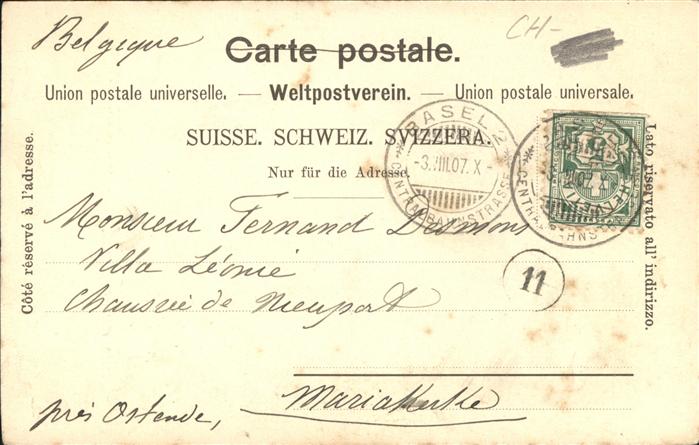 Belgique
CH-
Carte postale.
Union postale universelle. — Weltpostverein. — Union postale universale.
SUISSE. SCHWEIZ. SVIZZERA.
Nur für die Adresse.
Côté réservé à l'adresse.
Lato riservato all' indirizzo.
BASEL 2
-3.VIII.07.X-
CENTRALBAHNSTRASSE
HELVETIA
5
Monsieur Fernand Desmons
Villa Léonie
Chaussée de Nieuport
11
Mariakerke
près Ostende,